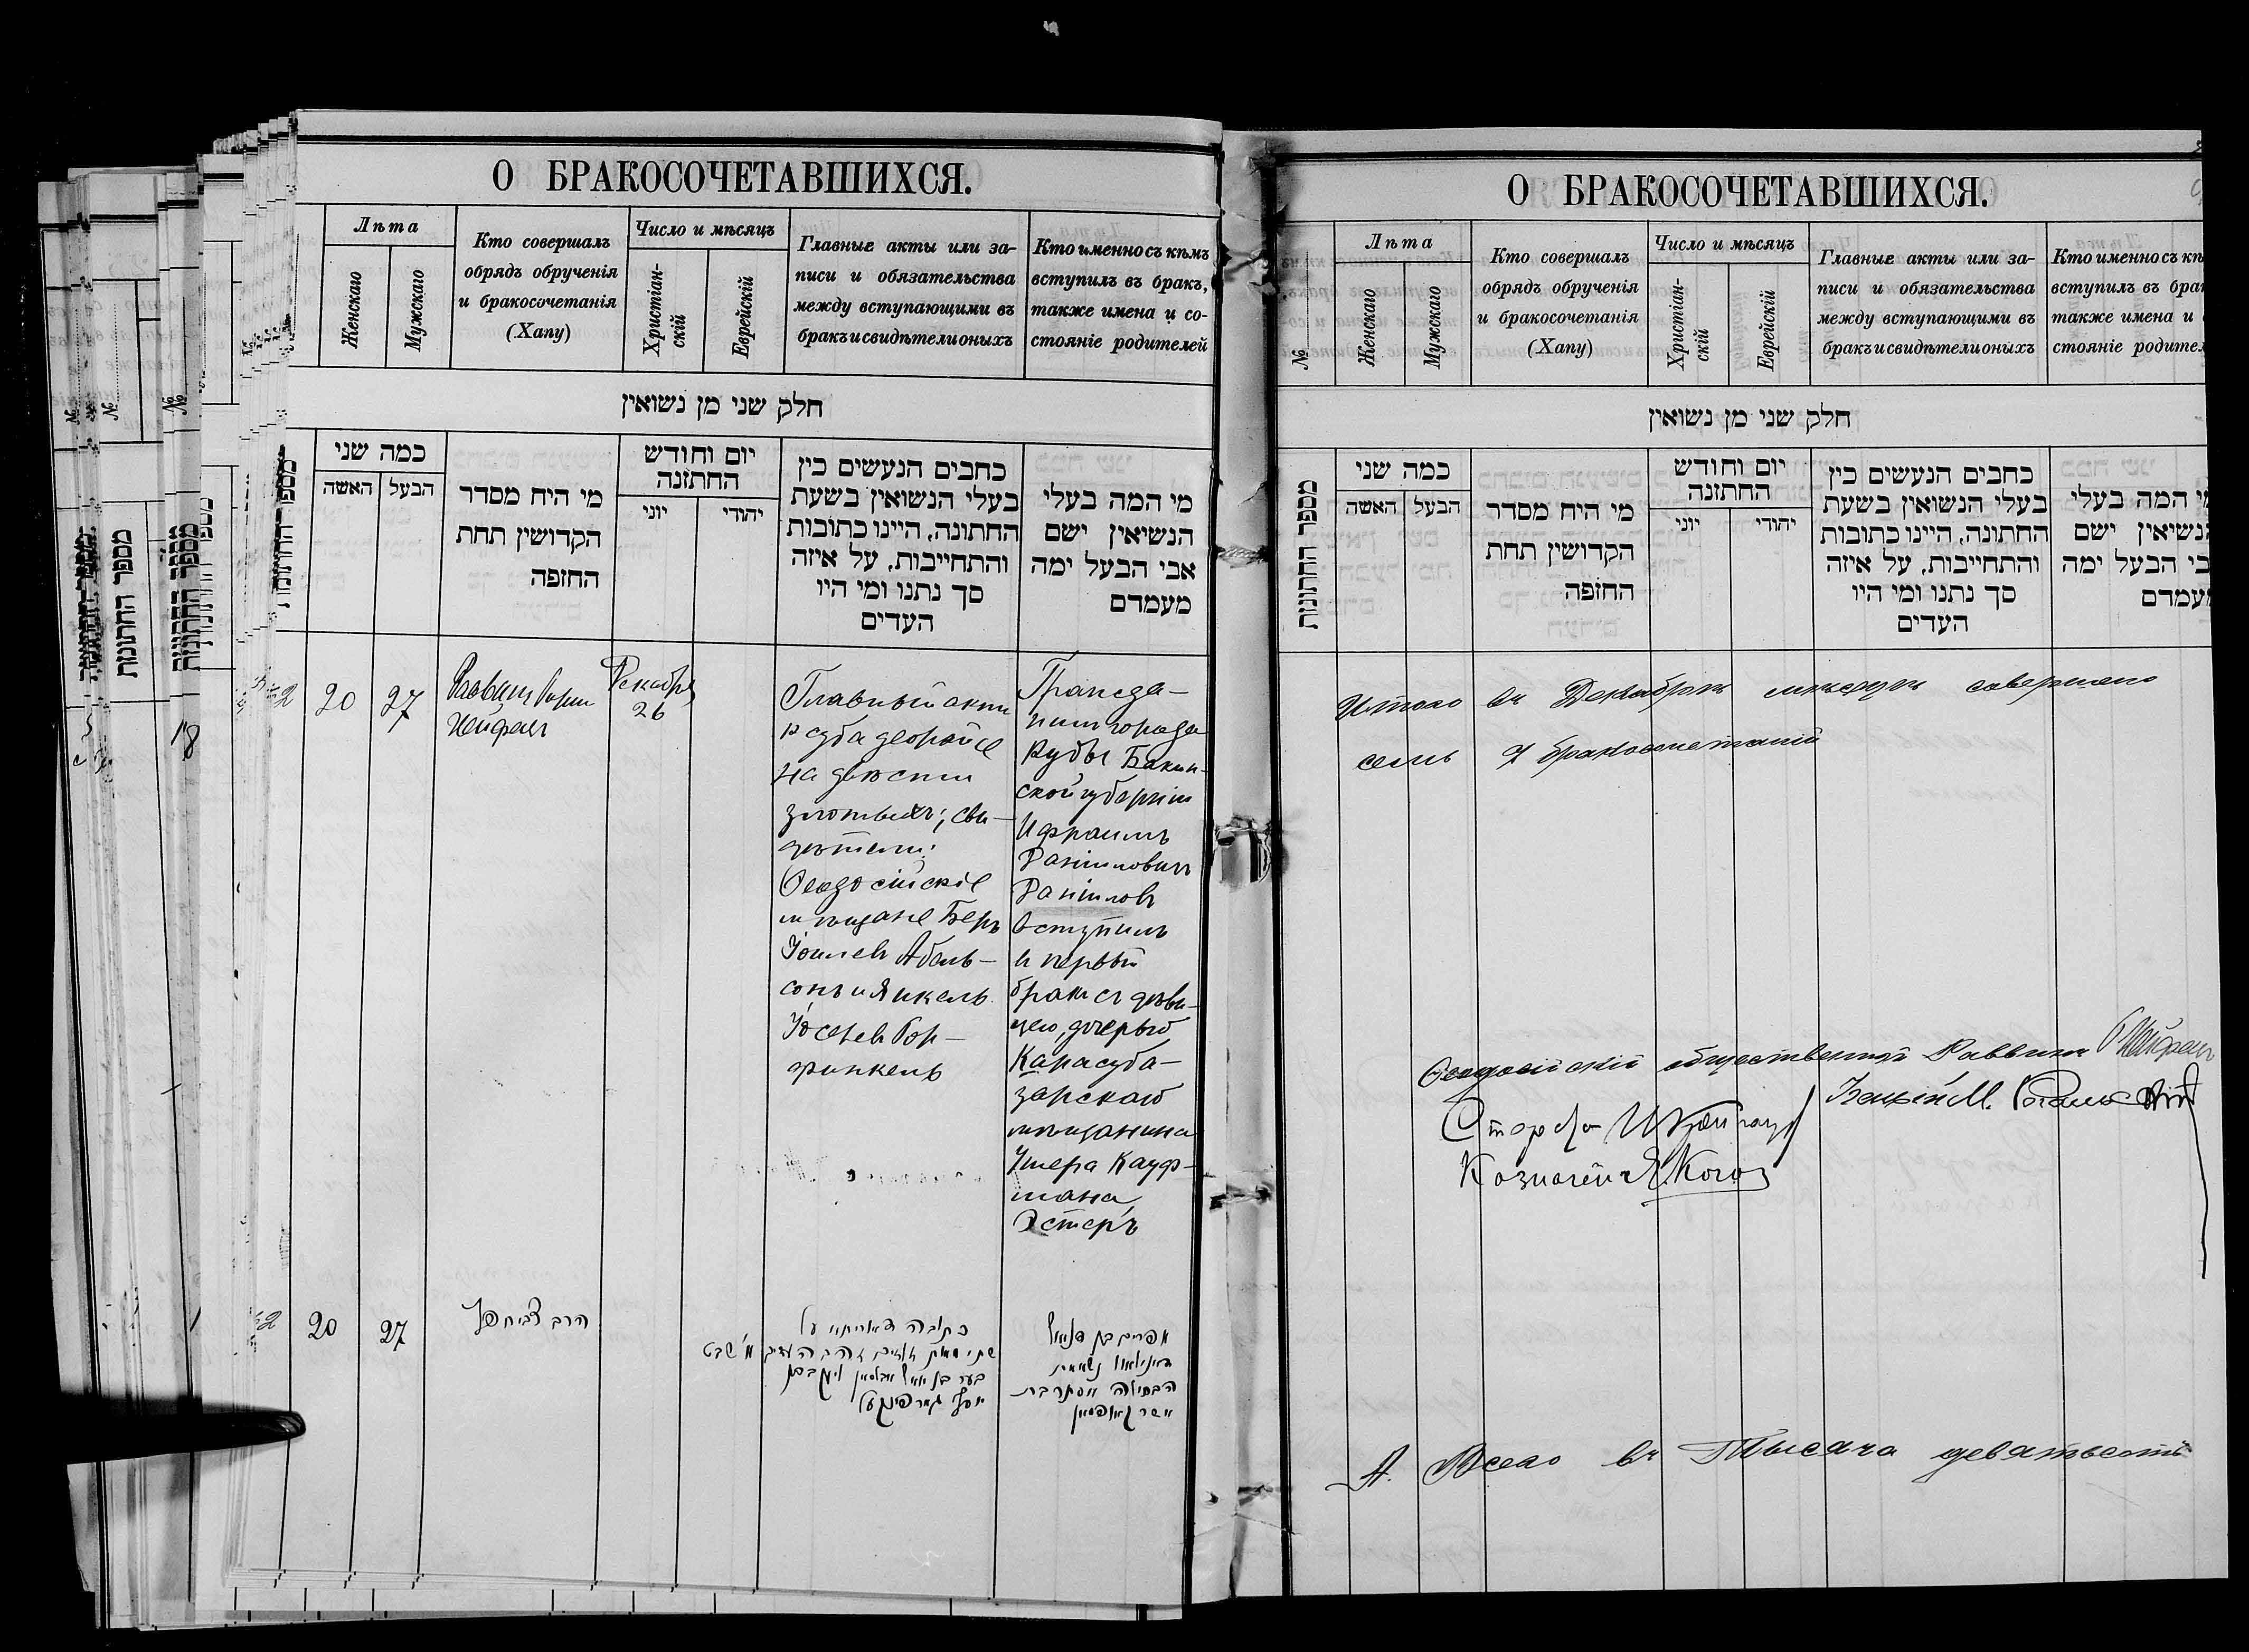 О БРАКОСОЧЕТАВШИХСЯ.
Лѣта
Женскаго
Мужскаго
Кто совершалъ
обрядъ обрученія
и бракосочетанія
(Хапу)
Число и мѣсяцъ
Христіан-
скій
Еврейскій
Главные акты или за-
писи и обязательства
между вступающими въ
бракъ и свидѣтели оныхъ
Кто именно съ кѣмъ
вступилъ въ бракъ,
также имена и со-
стояніе родителей
חלק שני מן נשואין
מספר החתונות
כמה שני
האשה
הבעל
מי היח מסדר
הקדושין תחת
החופה
יום וחודש
החתונה
יוני
יהודי
כחבים הנעשים כין
בעלי הנשואין בשעת
החתונה, היינו כתובות
והתחייבות, על איזה
סך נתנו ומי היו
העדים
מי המה בעלי
הנשיאין ישם
אבי הבעל ימה
מעמדם
2
20
27
Раввинъ
Нейфахъ
Декабря
26
Главный актъ
на двѣсти
злотыхъ; сви-
дѣтели:
Ѳеодосійскіе
мѣщане Беръ
Іоилевъ Абель-
сонъ и Янкель
Іоселевъ Гор-
финкель
Гражда-
нинъ города
Кубы Бакин-
ской губерніи
Ифраимъ
Даніиловичъ
Даніиловъ
вступилъ
въ первый
бракъ съ дѣви-
цею, дочерью
Карасуба-
зарскаго
мѣщанина
Ушера Кауф-
мана,
Эстеръ
18
2
20
27
הרב
כתובה דאוריתא על
א׳ שבט
אפרים בן דניאל
הבתולה אסתר בת
אשר קאופמאן
О БРАКОСОЧЕТАВШИХСЯ.
№
Лѣта
Женскаго
Мужскаго
Кто совершалъ
обрядъ обрученія
и бракосочетанія
(Хапу)
Число и мѣсяцъ
Христіан-
скій
Еврейскій
Главные акты или за-
писи и обязательства
между вступающими въ
бракъ и свидѣтели оныхъ
Кто именно съ кѣ
вступилъ въ бра
также имена и
стояніе родител
חלק שני מן נשואין
מספר החתונות
כמה שני
האשה
הבעל
מי היח מסדר
הקדושין תחת
החופה
יום וחודש
החתונה
יוני
יהודי
כחבים הנעשים כין
בעלי הנשואין בשעת
החתונה, היינו כתובות
והתחייבות, על איזה
סך נתנו ומי היו
העדים
י המה בעלי
נשיאין ישם
בי הבעל ימה
עמדם
Итого въ Декабрѣ мѣсяцѣ совершено
семь 7 бракосочетаній
Ѳеодосійскій общественный Раввинъ Нейфахъ
Староста
Казначей Я. Коган
А. Всего въ Тысяча девятьсотъ